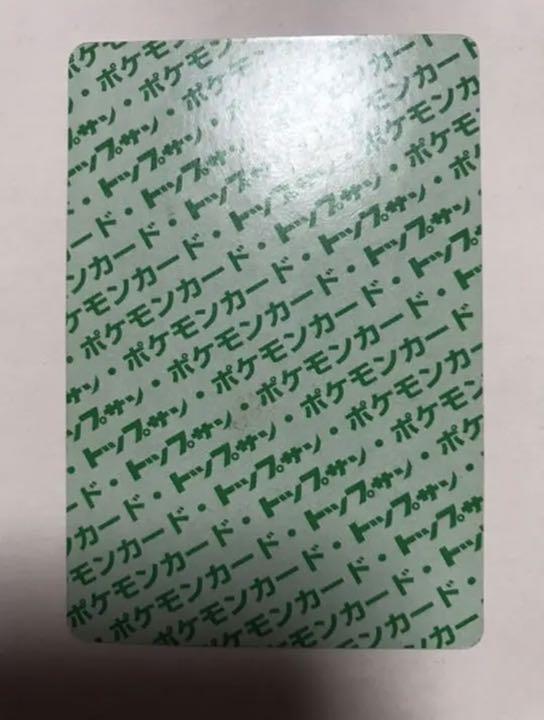 ポケ
・ポケモン
ップサン・ポケモ
・トップサン・ポケ
ード・トップサン・
ンカード・トップサン
ケモンカード・トップサン・ポケモンカ
・ポケモンカード・トップサン・ポケモ
サン・ポケモンカード・トップサン・ポ
ップサン・ポケモンカード・トップサン・
・トップサン・ポケモンカード・トップサ
ード・トップサン・ポケモンカード・ト
カード・トップサン・ポケモンカード
モンカード・トップサン・ポケモンカー
ポケモンカード・トップサン・ポケモン
・ポケモンカード・トップサン・ポケ
ポケモンカード・トップサン・
ケモンカード・トップサ
ポケモンカード・トッ
ポケモンカード・
ケモンカー